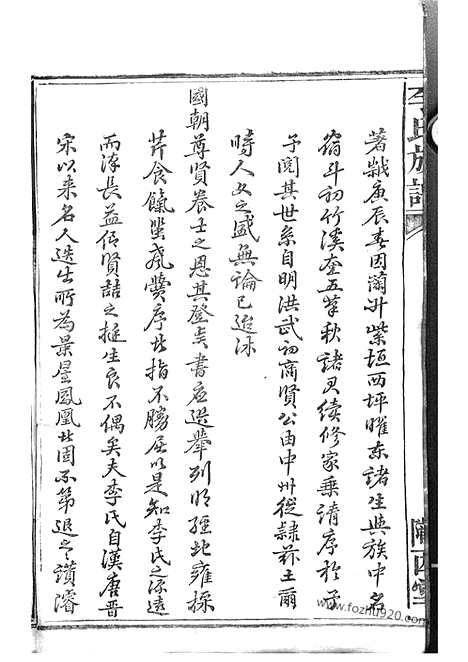 李氏族譜
著戰庚辰春因蘭升紫垣西坪曜東諸生與族中名
宿斗初竹溪奎五筆秋諸君續修家乘請序於予
予閱其世系自明洪武初商賢公由中州從隸茲土爾
時人文之盛無論已迨沐
國朝尊賢養士之恩其登貢書應選舉列明經北雍採
芹食餼蜚聲黌序指不勝屈以是知李氏之源遠
而流長益信賢喆之挺生良不偶矣夫李氏自漢唐晉
宋以來名人迭出所為景星鳳凰世固不第退之讚濬
www.fozhu920.com